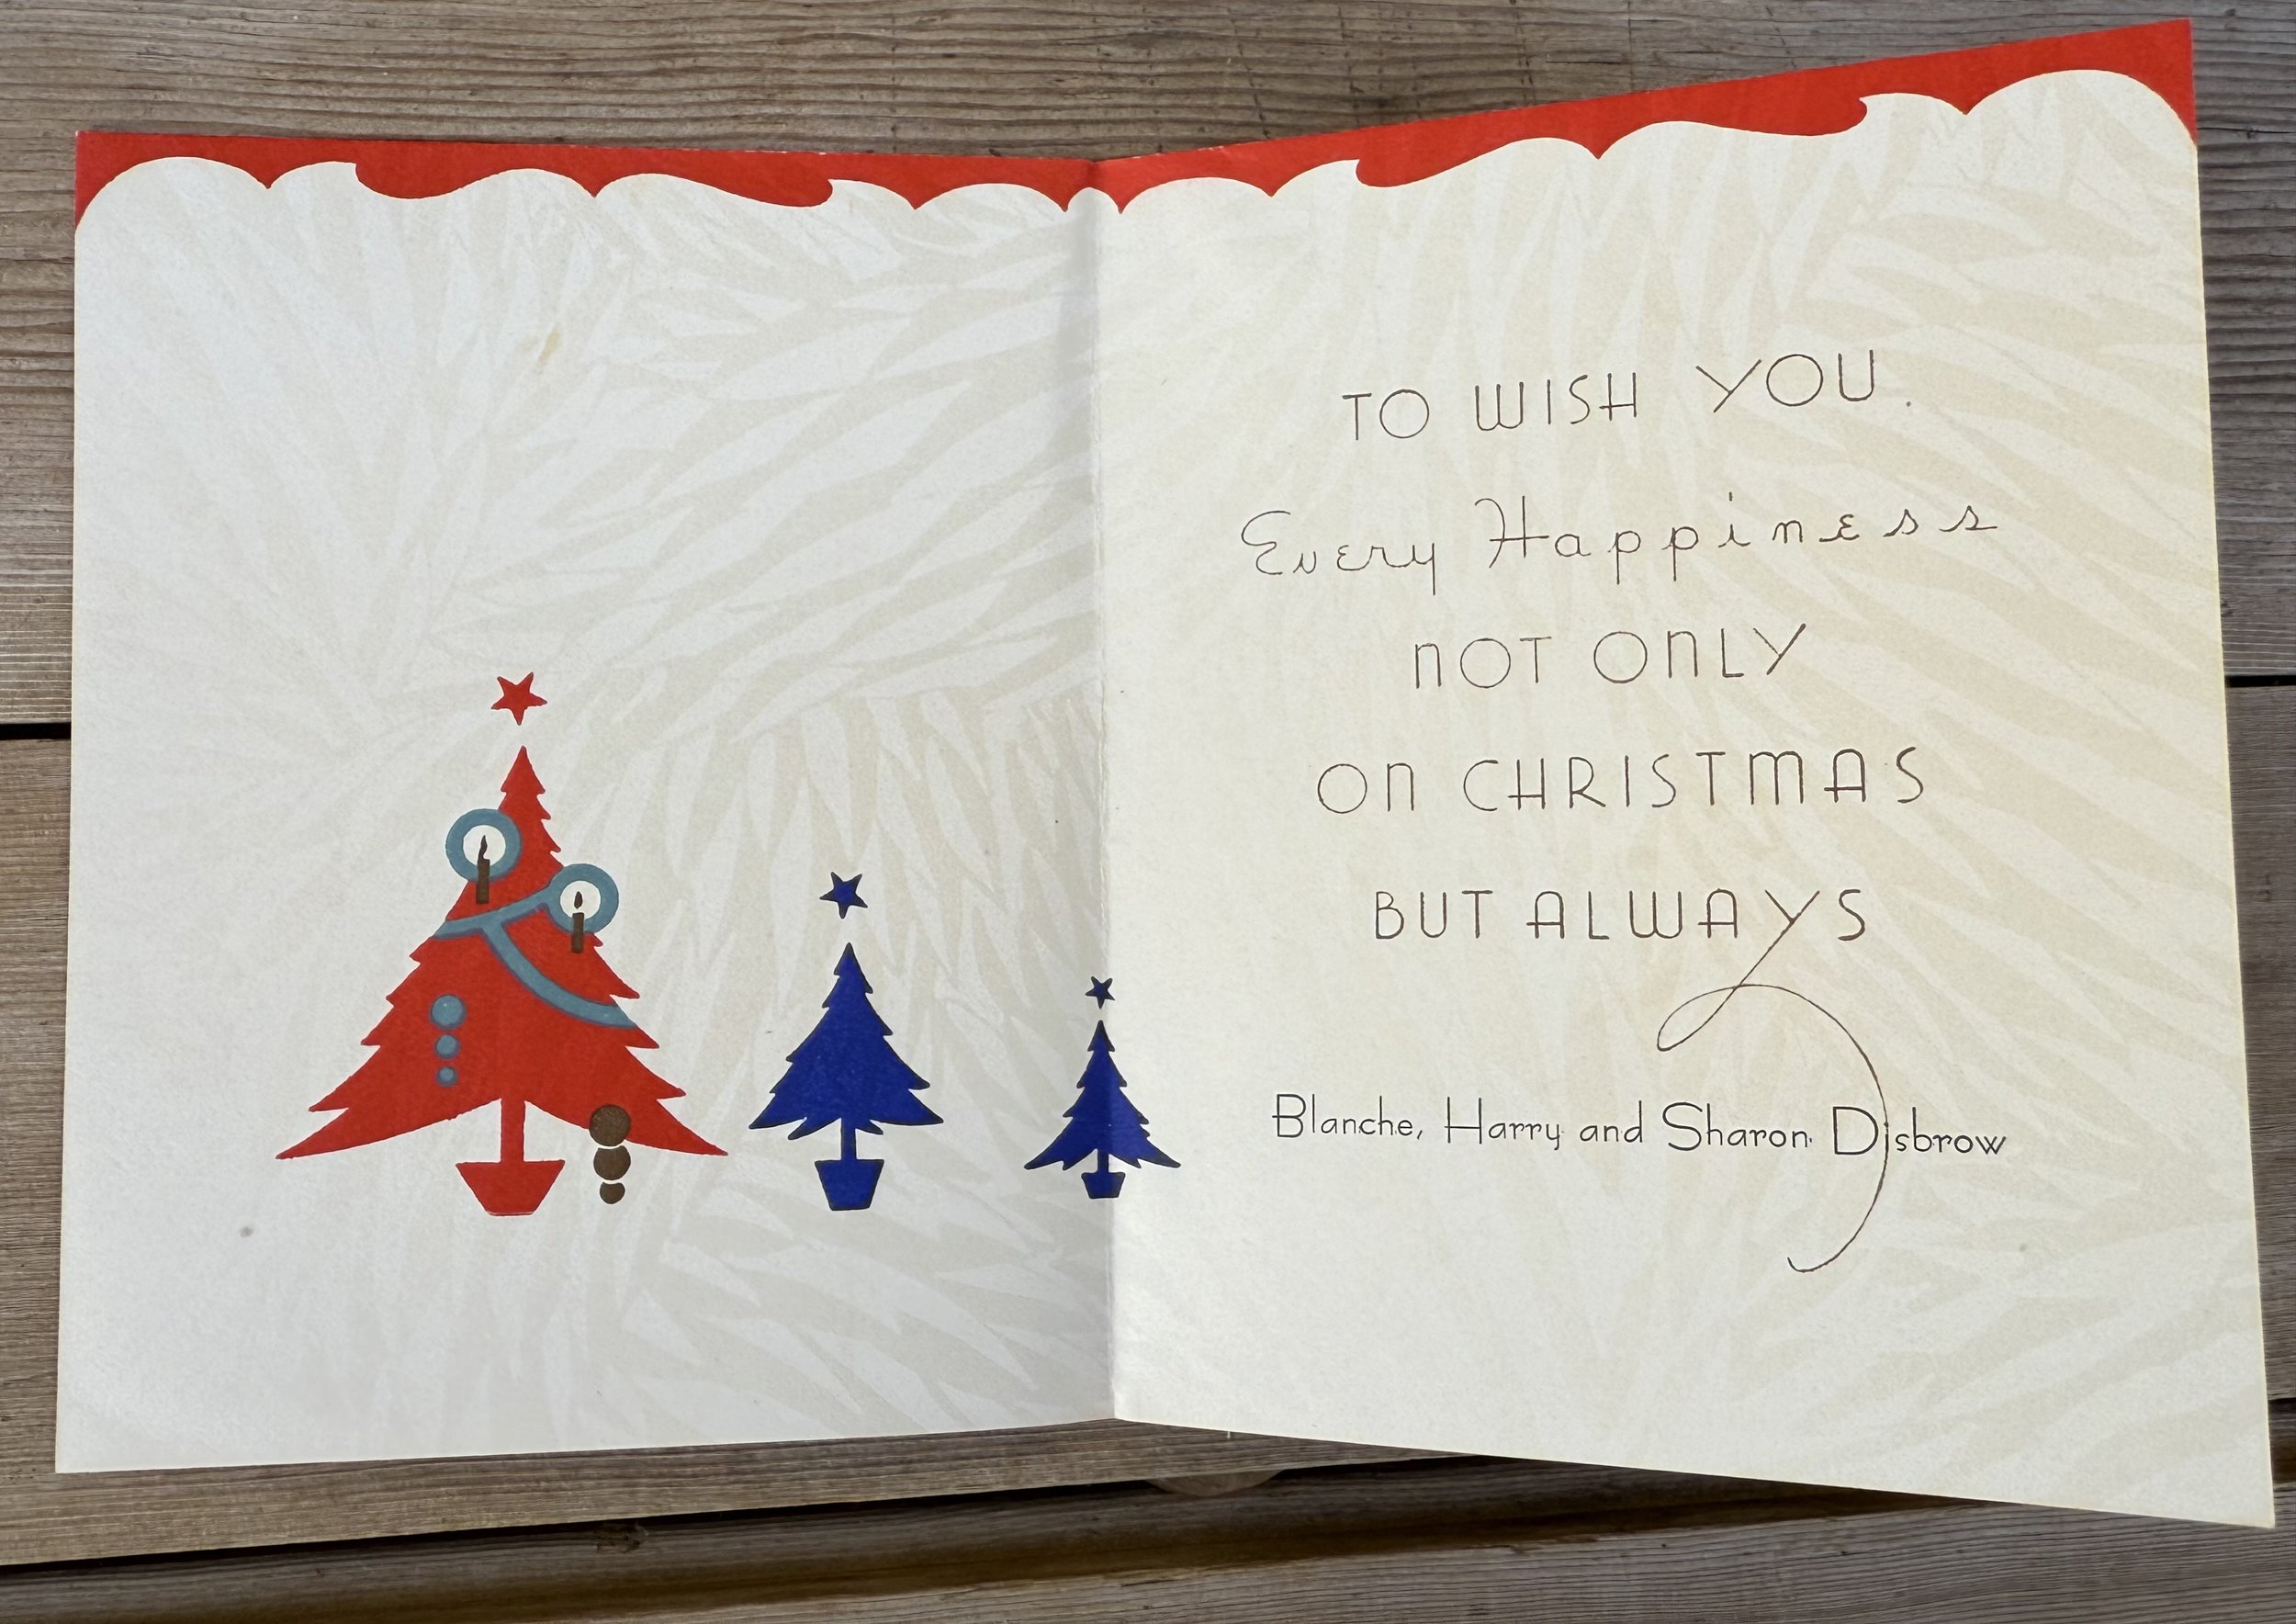 TO WISH YOU
Every Happiness
NOT ONLY
ON CHRISTMAS
BUT ALWAYS
Blanche, Harry and Sharon Disbrow